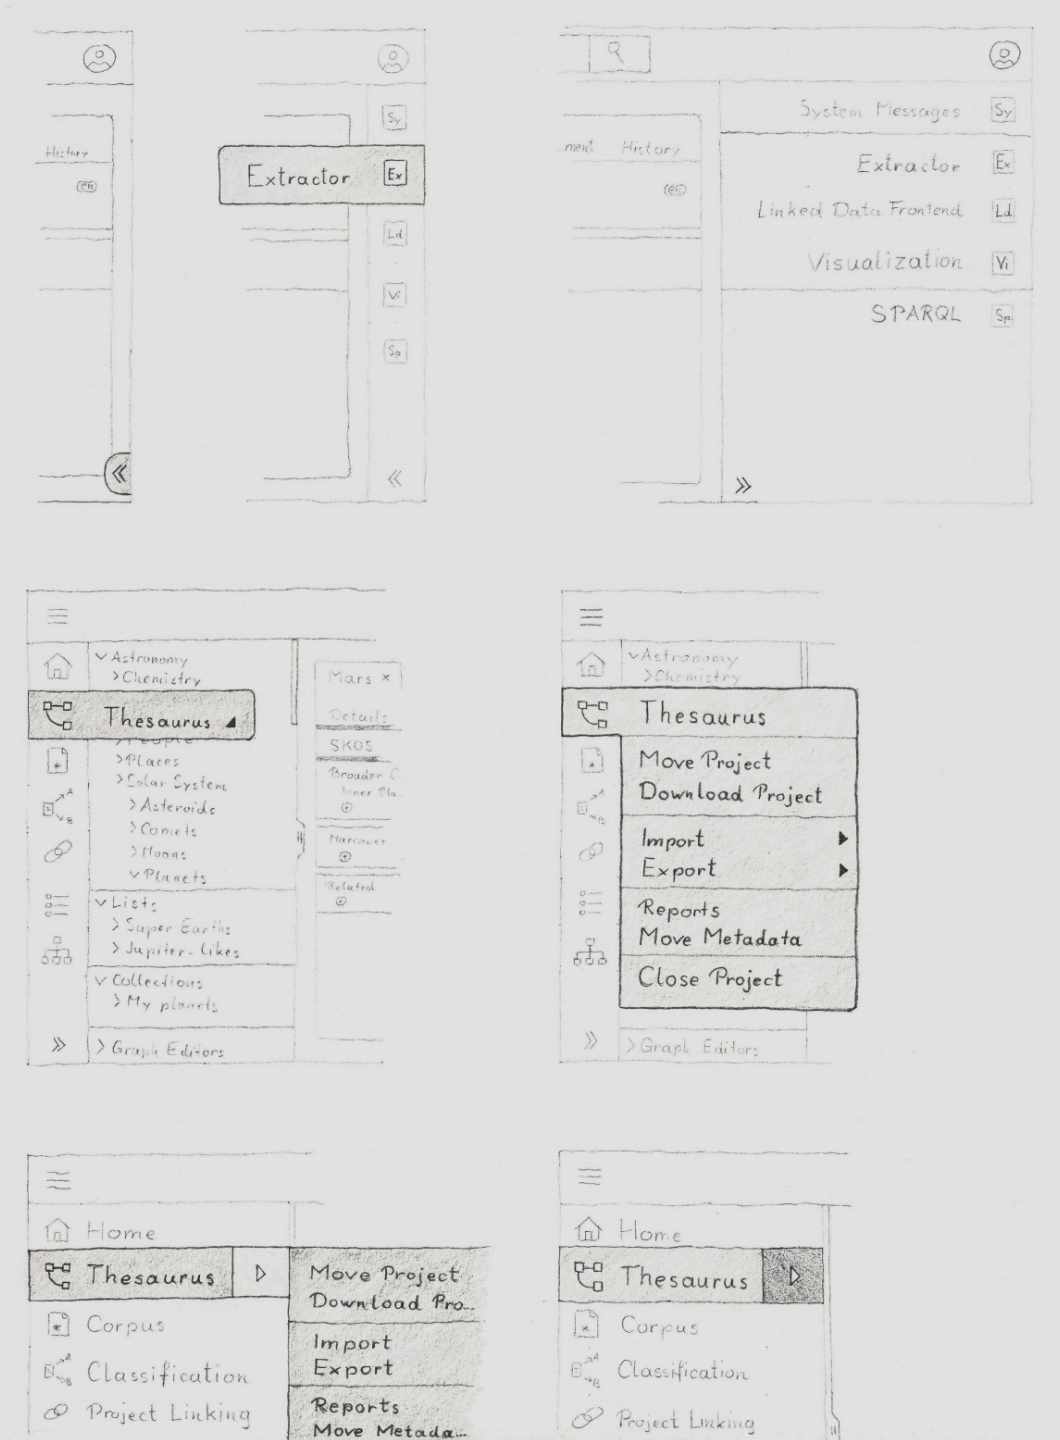 History
en
Sy
Extractor Ex
Ld
Vi
Sp
System Messages Sy
History
Extractor Ex
Linked Data Frontend Ld
Visualization Vi
SPARQL Sp
Astronomy
Chemistry
Thesaurus
People
Places
Solar System
Asteroids
A
B
Comets
Moons
Planets
Lists
Super Earths
Jupiter-likes
Collections
My planets
Graph Editors
Mars ×
Details
SKOS
Broader C
Inner Pla..
Narrower
Related
Astronomy
Chemistry
Thesaurus
Move Project
Download Project
A
B
Import
Export
Reports
Move Metadata
Close Project
Graph Editors
Home
Thesaurus
Corpus
A
B
Classification
Project Linking
Move Project
Download Pro...
Import
Export
Reports
Move Metada...
Home
Thesaurus
Corpus
A
B
Classification
Project Linking